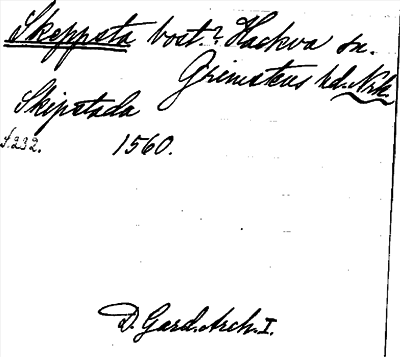 Skeppsta bost.? Hackva sn.
Grimstens hd. Nrk.
Skipstada
s. 232. 1560.
D. Gard. Arch. I.